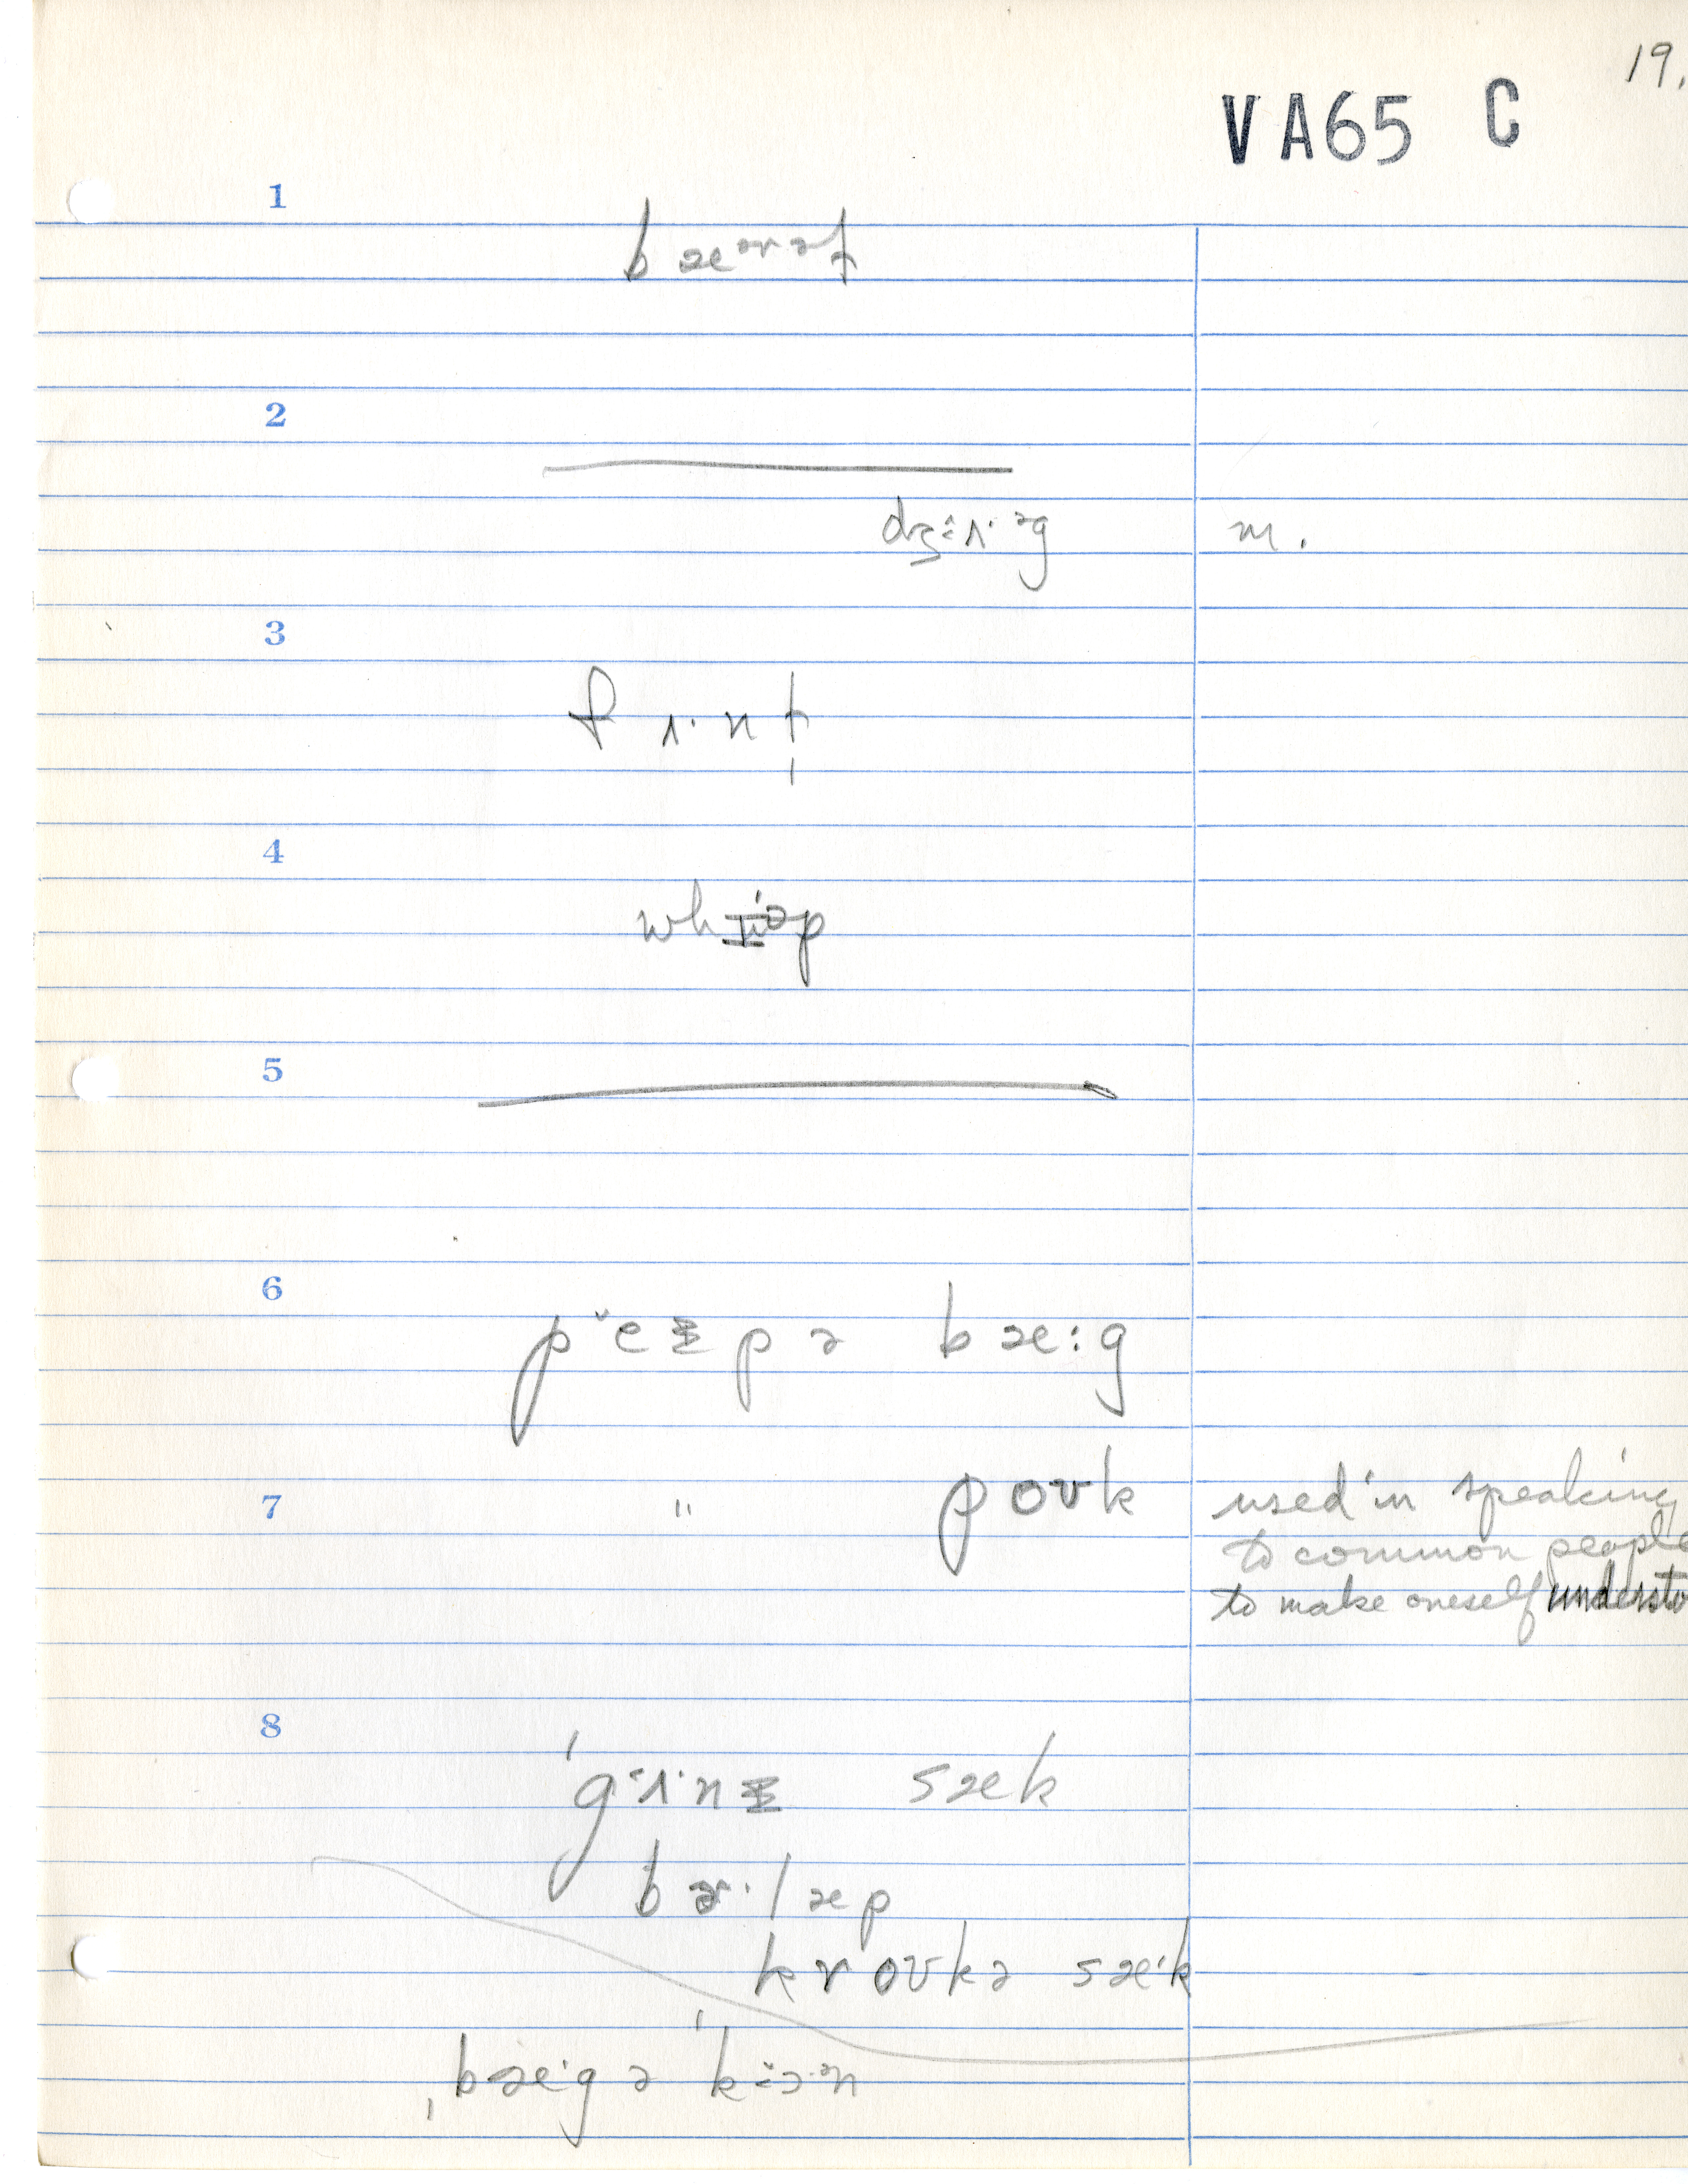 19.
VA65 C
1
bæᵊrəl
2
dʒɜʌ·ᵊg m.
3
fʌ·nḷ
4
whɪ·ᵊp
5
6
pˇeɪpə bæ:g
7 " poʊk used in speaking
to common people
to make oneself understo
8
gʌ·nɪ sæk
bɚ·læp
kroʊkə sæ·k
bæ·gə k ɔ·ᵊn